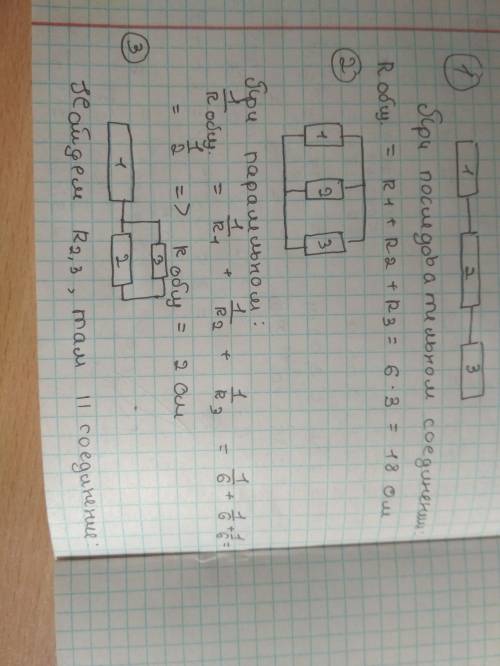 1
1 2 3
При последовательном соединении:
Rобщ. = R1 + R2 + R3 = 6 · 3 = 18 Ом
2
1
2
3
При паралельном:
1/Rобщ. = 1/R1 + 1/R2 + 1/R3 = 1/6 + 1/6 + 1/6 =
= 1/2 => Rобщ = 2 Ом
3
1 2 3
Найдем R2,3, там || соединение: